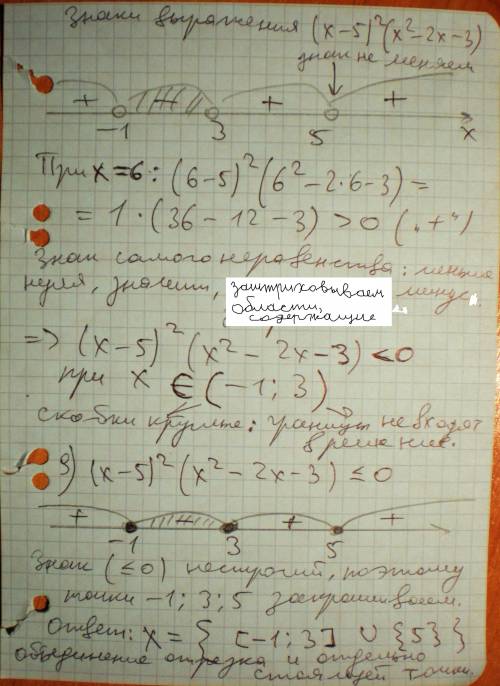 Знаки выражения (x-5)²(x²-2x-3)
знак не меняем
+ - + +
-1 3 5 x
При x=6: (6-5)²(6²-2·6-3)=
= 1·(36-12-3)>0 („+")
Знак самого неравенства: меньше
нуля, значит, заштриховываем минус
области, содержащие
=> (x-5)²(x²-2x-3)<0
при x ∈ (-1; 3)
скобки круглые: границы не входят
в решение.
9) (x-5)²(x²-2x-3) ≤ 0
+ - + +
-1 3 5
Знак (≤0) нестрогий, поэтому
точки -1; 3; 5 закрашиваем.
Ответ: x = { [-1; 3] ∪ {5} }
объединение отрезка и отдельно
стоящей точки.